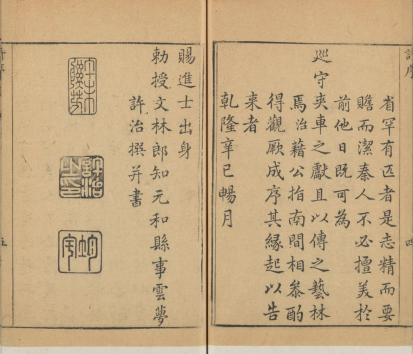 省罕有匹者是志精而要
贍而潔秦人不必擅美於
前他日既可為
巡守夾車之獻且以傳之藝林
焉治藉公指南間相叅酌
得觀厥成序其緣起以告
来者
乾隆辛巳暢月
賜進士出身
勅授文林郎知元和縣事雲夢
許治撰并書
許治之印